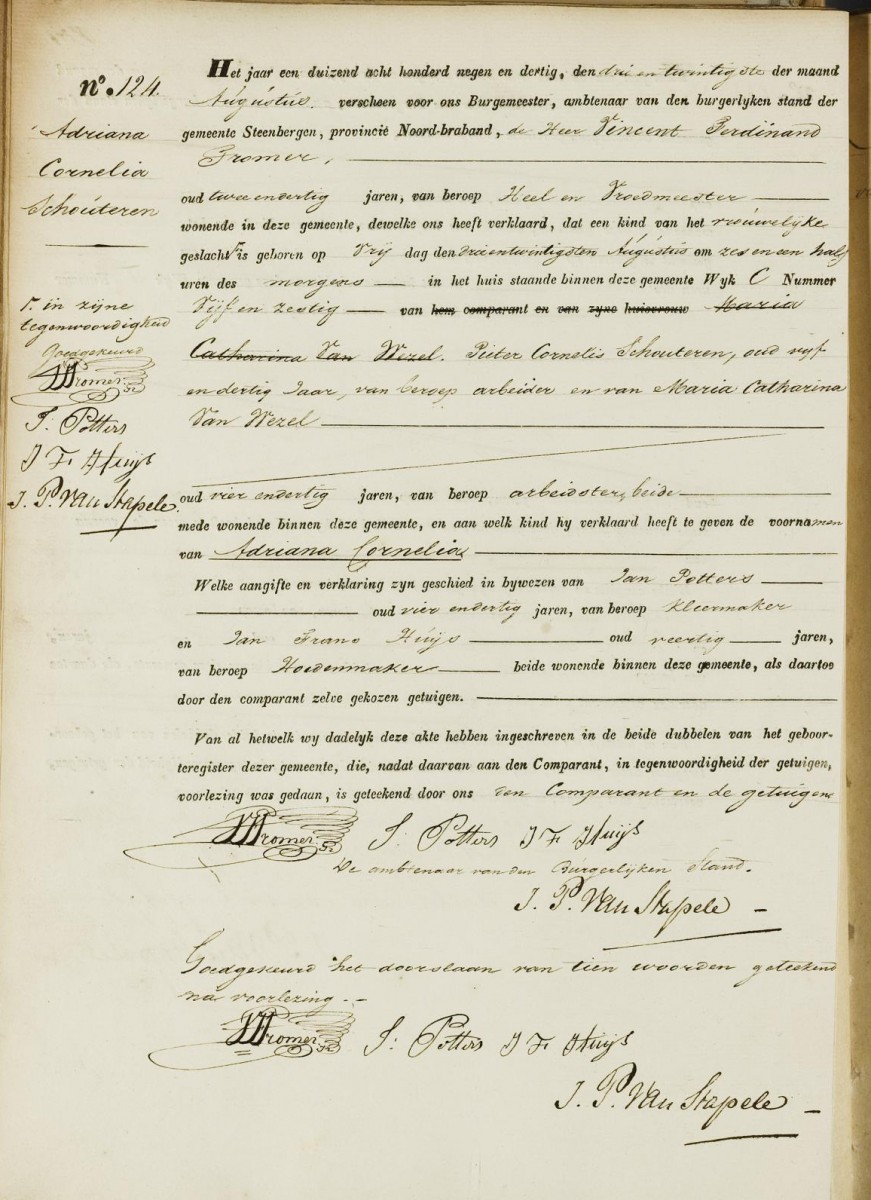 No. 124.
Adriana
Cornelia
Schouteren
Het jaar een duizend acht honderd negen en dertig, den drie en twintigste der maand
Augustus. verscheen voor ons Burgemeester, ambtenaar van den burgerlyken stand der
gemeente Steenbergen, provincie Noord-braband, de Heer Vincent Ferdinand
Fromer,
oud twee endertig jaren, van beroep Heel en Vroedmeester
wonende in deze gemeente, dewelke ons heeft verklaard, dat een kind van het vrouwelijke
geslacht is geboren op Vrij dag den drieentwintigsten Augustus om zes en een half
uren des morgens in het huis staande binnen deze gemeente Wyk C Nummer
Vijf en zestig van hem comparant en van zyne huisvrouw Maria
Catharina Van Wezel. Pieter Cornelis Schouteren, oud vijf
en dertig Jaar, van beroep arbeider en van Maria Catharina
Van Wezel
oud vier endertig jaren, van beroep arbeidster, beide
mede wonende binnen deze gemeente, en aan welk kind hy verklaard heeft te geven de voornamen
van Adriana Cornelia
Welke aangifte en verklaring zyn geschied in bywezen van Jan Potters
oud vier endertig jaren, van beroep Kleermaker
en Jan Frans Huijs oud veertig jaren,
van beroep Hoedenmaker beide wonende binnen deze gemeente, als daartoe
door den comparant zelve gekozen getuigen.
Van al hetwelk wy dadelyk deze akte hebben ingeschreven in de beide dubbelen van het geboor-
teregister dezer gemeente, die, nadat daarvan aan den Comparant, in tegenwoordigheid der getuigen,
voorlezing was gedaan, is geteekend door ons den Comparant en de getuigen
VFromer J: Potters J F Huijs
De ambtenaar van den Burgerlijken Stand.
J. P. Van Stapele
Goedgekeurd het doorslaan van tien woorden geteekend
na voorlezing.
VFromer J: Potters J F Huijs
J. P. Van Stapele
in zijne
tegenwoordigheid
Goedgekeurd
VFromer
J: Potters
J F Huijs
J. P. Van Stapele